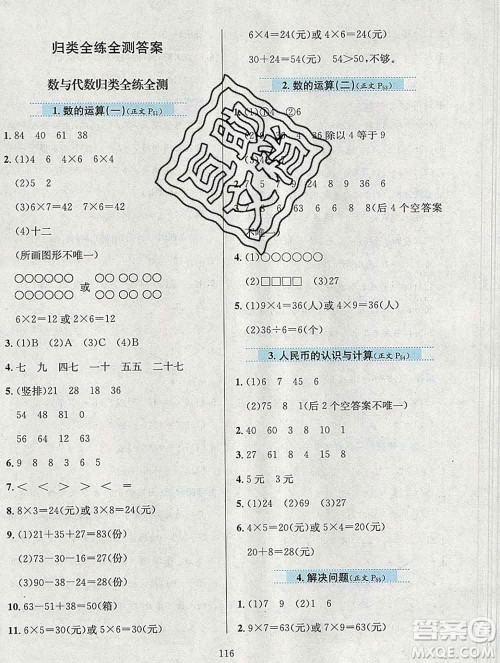 归类全练全测答案
数与代数归类全练全测
1. 数的运算(一)(正文 P51)
1. 84 40 61 38
2. (1)4 6×4=24 4×6=24
(2)5 2
(3)6×7=42 7×6=42
(4)十二
(所画图形不唯一)
○○○○○○ ○○ ○○ ○○
○○○○○○ 或 ○○ ○○ ○○
6×2=12 或 2×6=12
3. (1)A (2)B (3)C
4. 七 九 四七 一五 五 二十七
5. (竖排)16 18 48 83
54 34 31 28
6. 9 8 8 8 9 8
7. < > < > > >
8. 8×3=24(元)或 3×8=24(元)
9. (1)21+35+27=83(份)
(2)73-28=45(份)
(3)38-15=23(份)
10. 63-51-4=8(箱)
11. 6×5=30(元)或 5×6=30(元)
6×4=24(元)或 4×6=24(元)
30+24=54(元) 54>50,不够。
2. 数的运算(二)(正文 P52)
②6
36 除以 4 等于 9
7 5 8 7 4 9
8 8 1 8(后 4 个空答案
不唯一)
4. (1)○○
(2)□□□□
5. (1)9×4=36(人)或 4×9=36(人)
(2)36÷6=6(人)
3. 人民币的认识与计算(正文 P54)
1. (1)6 7 45 6
(2)75 8 1(后 2 个空答案不唯一)
2. 40 30 9 13
3. 27
4. 5元 3元
5. > < =
6. 4×5=20(元)或 5×4=20(元)
20+8=28(元)
4. 解决问题(正文 P55)
1. B
2. 9×7=63(元)或 7×9=63(元)
116
自助
文档
作业帮
MXQE.COM